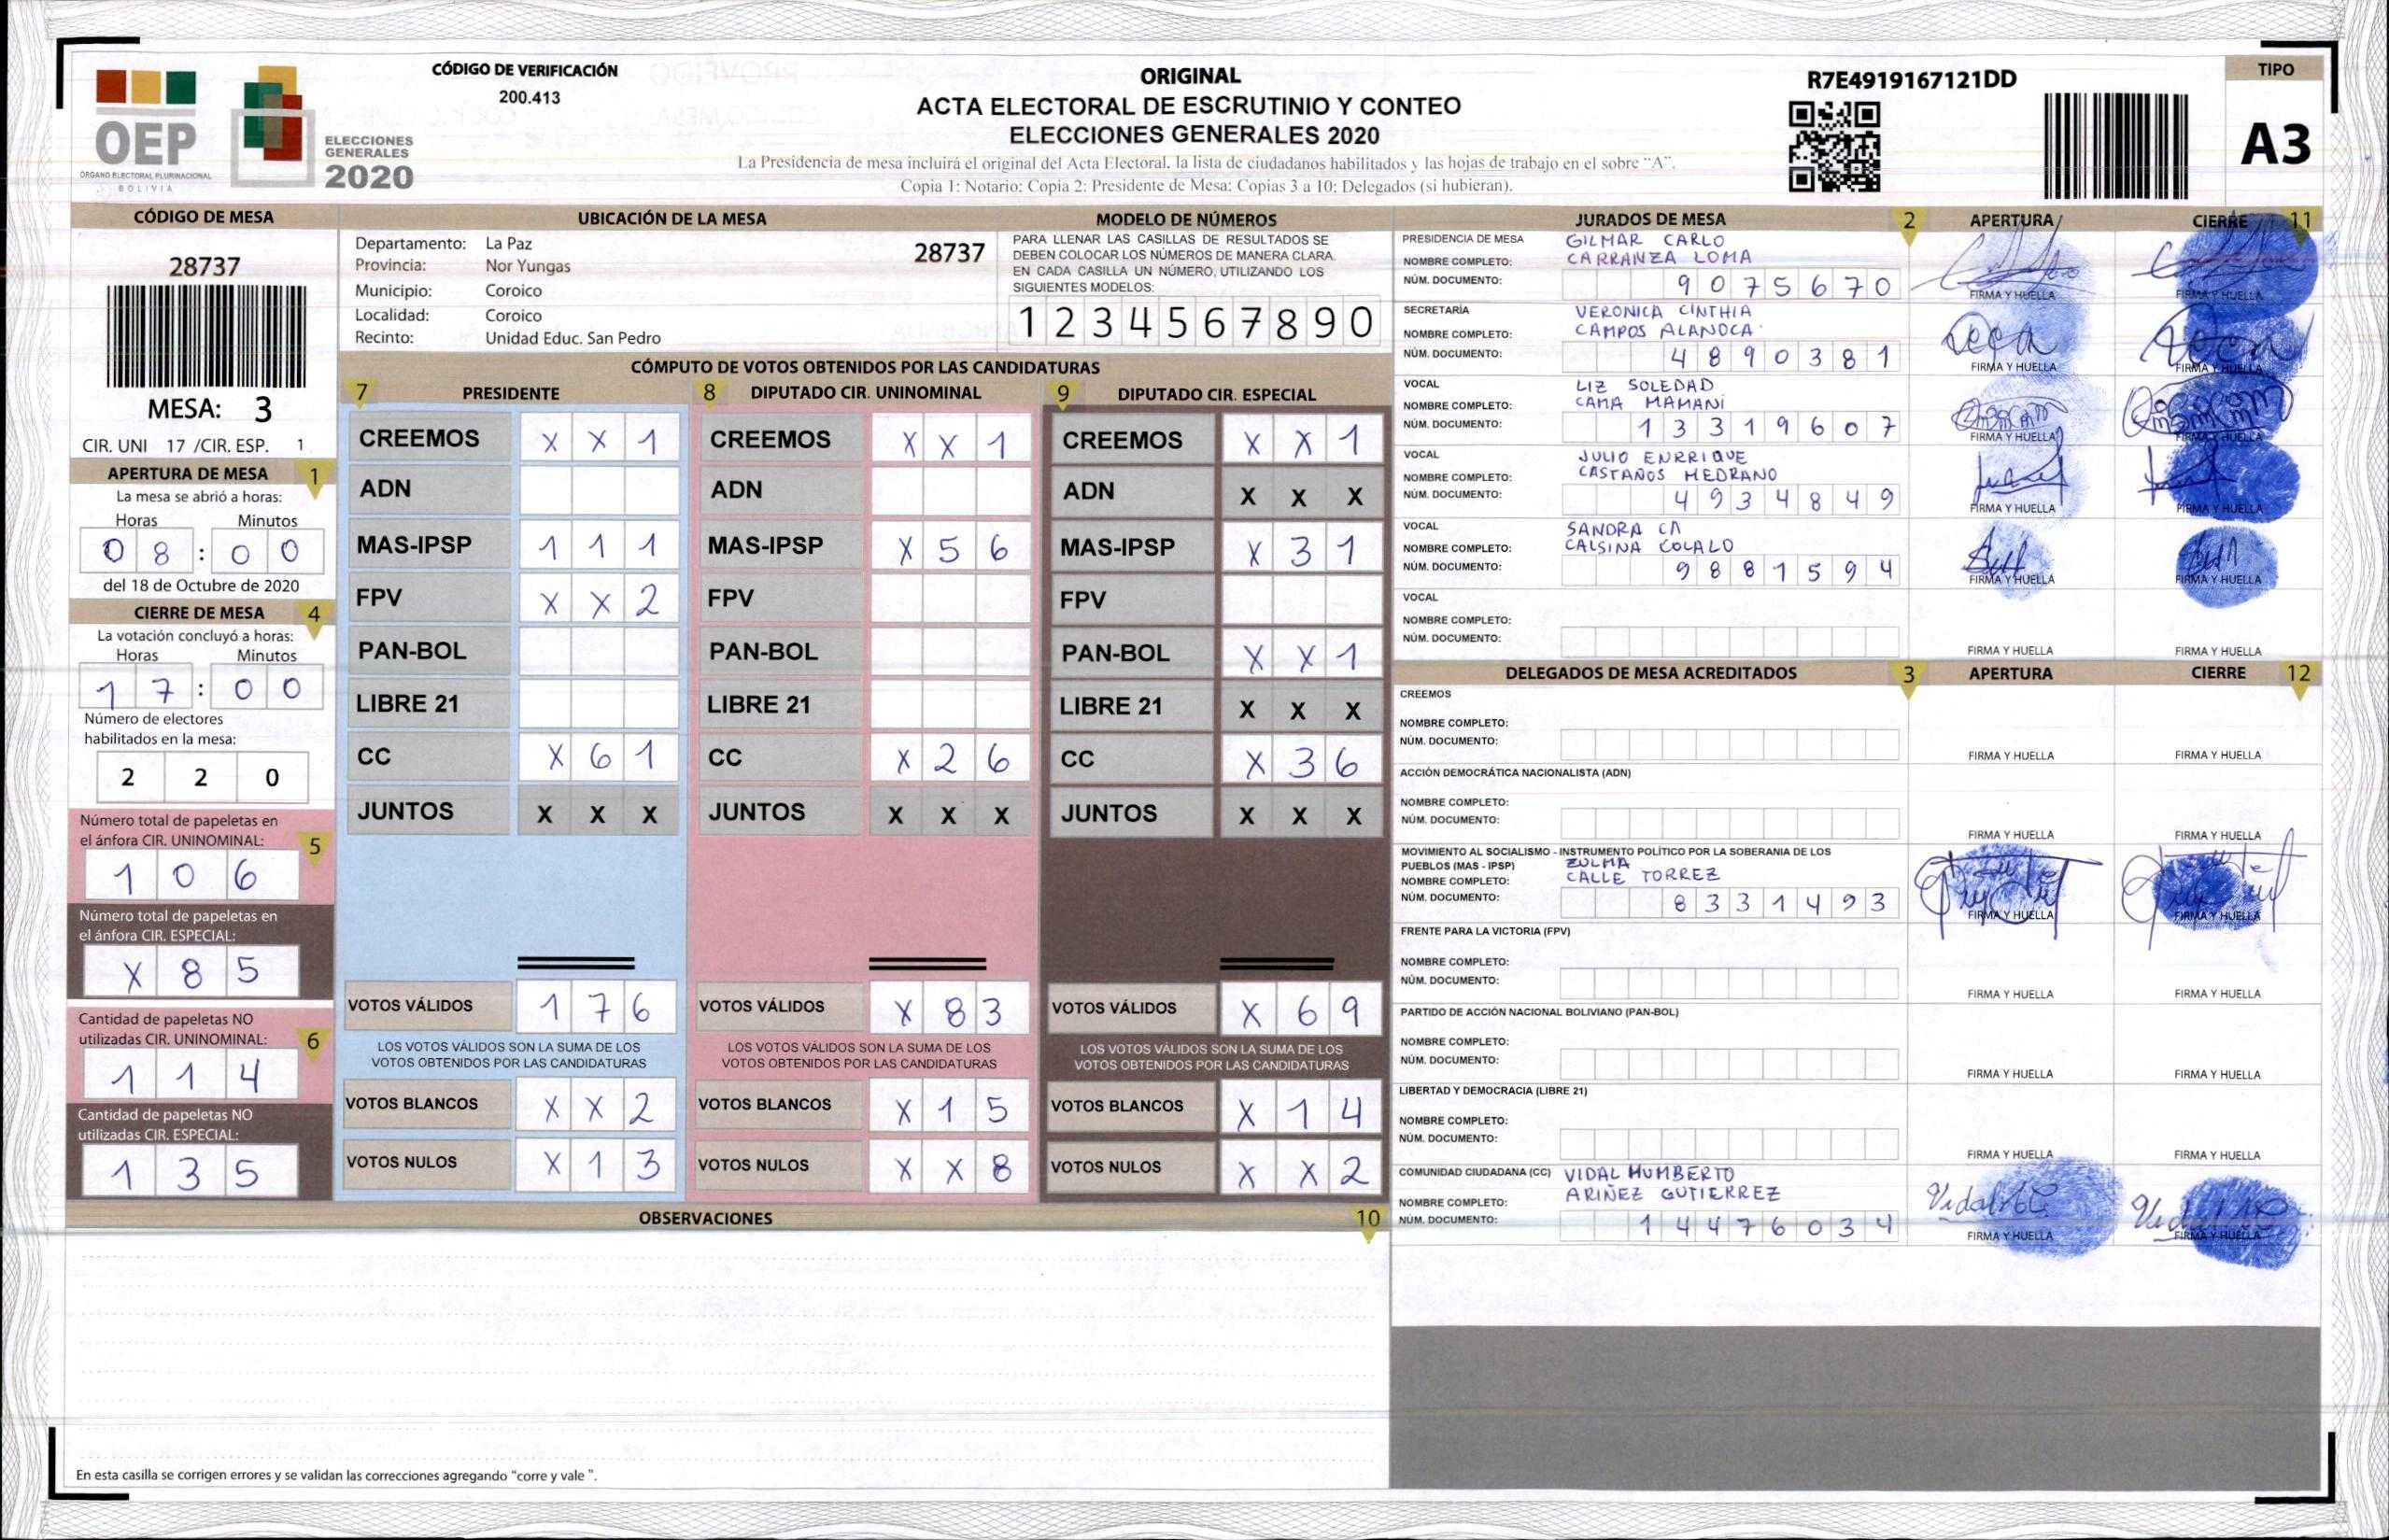 OEP
ÓRGANO ELECTORAL PLURINACIONAL
BOLIVIA
ELECCIONES
GENERALES
2020
CÓDIGO DE VERIFICACIÓN
200.413
ORIGINAL
ACTA ELECTORAL DE ESCRUTINIO Y CONTEO
ELECCIONES GENERALES 2020
La Presidencia de mesa incluirá el original del Acta Electoral, la lista de ciudadanos habilitados y las hojas de trabajo en el sobre "A".
Copia 1: Notario; Copia 2: Presidente de Mesa; Copias 3 a 10: Delegados (si hubieran).
R7E4919167121DD
TIPO
A3
CÓDIGO DE MESA
28737
MESA: 3
CIR. UNI 17 /CIR. ESP. 1
APERTURA DE MESA 1
La mesa se abrió a horas:
Horas Minutos
0 8 : 0 0
del 18 de Octubre de 2020
CIERRE DE MESA 4
La votación concluyó a horas:
Horas Minutos
1 7 : 0 0
Número de electores
habilitados en la mesa:
2 2 0
Número total de papeletas en
el ánfora CIR. UNINOMINAL: 5
1 0 6
Número total de papeletas en
el ánfora CIR. ESPECIAL:
X 8 5
Cantidad de papeletas NO
utilizadas CIR. UNINOMINAL: 6
1 1 4
Cantidad de papeletas NO
utilizadas CIR. ESPECIAL:
1 3 5
UBICACIÓN DE LA MESA
Departamento: La Paz 28737
Provincia: Nor Yungas
Municipio: Coroico
Localidad: Coroico
Recinto: Unidad Educ. San Pedro
MODELO DE NÚMEROS
PARA LLENAR LAS CASILLAS DE RESULTADOS SE
DEBEN COLOCAR LOS NÚMEROS DE MANERA CLARA.
EN CADA CASILLA UN NÚMERO, UTILIZANDO LOS
SIGUIENTES MODELOS:
1 2 3 4 5 6 7 8 9 0
CÓMPUTO DE VOTOS OBTENIDOS POR LAS CANDIDATURAS
7 PRESIDENTE
CREEMOS X X 1
ADN
MAS-IPSP 1 1 1
FPV X X 2
PAN-BOL
LIBRE 21
CC X 6 1
JUNTOS X X X
VOTOS VÁLIDOS 1 7 6
LOS VOTOS VÁLIDOS SON LA SUMA DE LOS
VOTOS OBTENIDOS POR LAS CANDIDATURAS
VOTOS BLANCOS X X 2
VOTOS NULOS X 1 3
8 DIPUTADO CIR. UNINOMINAL
CREEMOS X X 1
ADN
MAS-IPSP X 5 6
FPV
PAN-BOL
LIBRE 21
CC X 2 6
JUNTOS X X X
VOTOS VÁLIDOS X 8 3
LOS VOTOS VÁLIDOS SON LA SUMA DE LOS
VOTOS OBTENIDOS POR LAS CANDIDATURAS
VOTOS BLANCOS X 1 5
VOTOS NULOS X X 8
9 DIPUTADO CIR. ESPECIAL
CREEMOS X X 1
ADN X X X
MAS-IPSP X 3 1
FPV
PAN-BOL X X 1
LIBRE 21 X X X
CC X 3 6
JUNTOS X X X
VOTOS VÁLIDOS X 6 9
LOS VOTOS VÁLIDOS SON LA SUMA DE LOS
VOTOS OBTENIDOS POR LAS CANDIDATURAS
VOTOS BLANCOS X 1 4
VOTOS NULOS X X 2
OBSERVACIONES 10
En esta casilla se corrigen errores y se validan las correcciones agregando "corre y vale ".
JURADOS DE MESA 2 APERTURA CIERRE 11
PRESIDENCIA DE MESA GILMAR CARLO
NOMBRE COMPLETO: CARRANZA LOMA
NÚM. DOCUMENTO: 9 0 7 5 6 7 0
FIRMA Y HUELLA FIRMA Y HUELLA
SECRETARÍA VERONICA CINTHIA
NOMBRE COMPLETO: CAMPOS ALANOCA
NÚM. DOCUMENTO: 4 8 9 0 3 8 1
FIRMA Y HUELLA FIRMA Y HUELLA
VOCAL LIZ SOLEDAD
NOMBRE COMPLETO: CAMA MAMANI
NÚM. DOCUMENTO: 1 3 3 1 9 6 0 7
FIRMA Y HUELLA FIRMA Y HUELLA
VOCAL JULIO ENRRIQUE
NOMBRE COMPLETO: CASTAÑOS MEDRANO
NÚM. DOCUMENTO: 4 9 3 4 8 4 9
FIRMA Y HUELLA FIRMA Y HUELLA
VOCAL SANDRA CA
NOMBRE COMPLETO: CALSINA COLALO
NÚM. DOCUMENTO: 9 8 8 1 5 9 4
FIRMA Y HUELLA FIRMA Y HUELLA
VOCAL
NOMBRE COMPLETO:
NÚM. DOCUMENTO:
FIRMA Y HUELLA FIRMA Y HUELLA
DELEGADOS DE MESA ACREDITADOS 3 APERTURA CIERRE 12
CREEMOS
NOMBRE COMPLETO:
NÚM. DOCUMENTO:
FIRMA Y HUELLA FIRMA Y HUELLA
ACCIÓN DEMOCRÁTICA NACIONALISTA (ADN)
NOMBRE COMPLETO:
NÚM. DOCUMENTO:
FIRMA Y HUELLA FIRMA Y HUELLA
MOVIMIENTO AL SOCIALISMO - INSTRUMENTO POLÍTICO POR LA SOBERANIA DE LOS
PUEBLOS (MAS - IPSP) ZULMA
NOMBRE COMPLETO: CALLE TORREZ
NÚM. DOCUMENTO: 8 3 3 1 4 9 3
FIRMA Y HUELLA FIRMA Y HUELLA
FRENTE PARA LA VICTORIA (FPV)
NOMBRE COMPLETO:
NÚM. DOCUMENTO:
FIRMA Y HUELLA FIRMA Y HUELLA
PARTIDO DE ACCIÓN NACIONAL BOLIVIANO (PAN-BOL)
NOMBRE COMPLETO:
NÚM. DOCUMENTO:
FIRMA Y HUELLA FIRMA Y HUELLA
LIBERTAD Y DEMOCRACIA (LIBRE 21)
NOMBRE COMPLETO:
NÚM. DOCUMENTO:
FIRMA Y HUELLA FIRMA Y HUELLA
COMUNIDAD CIUDADANA (CC) VIDAL HUMBERTO
NOMBRE COMPLETO: ARIÑEZ GUTIERREZ
NÚM. DOCUMENTO: 1 4 4 7 6 0 3 4
FIRMA Y HUELLA FIRMA Y HUELLA